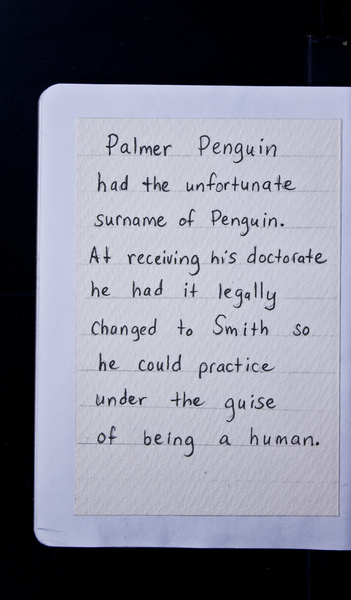 Palmer Penguin
had the unfortunate
surname of Penguin.
At receiving his doctorate
he had it legally
changed to Smith so
he could practice
under the guise
of being a human.